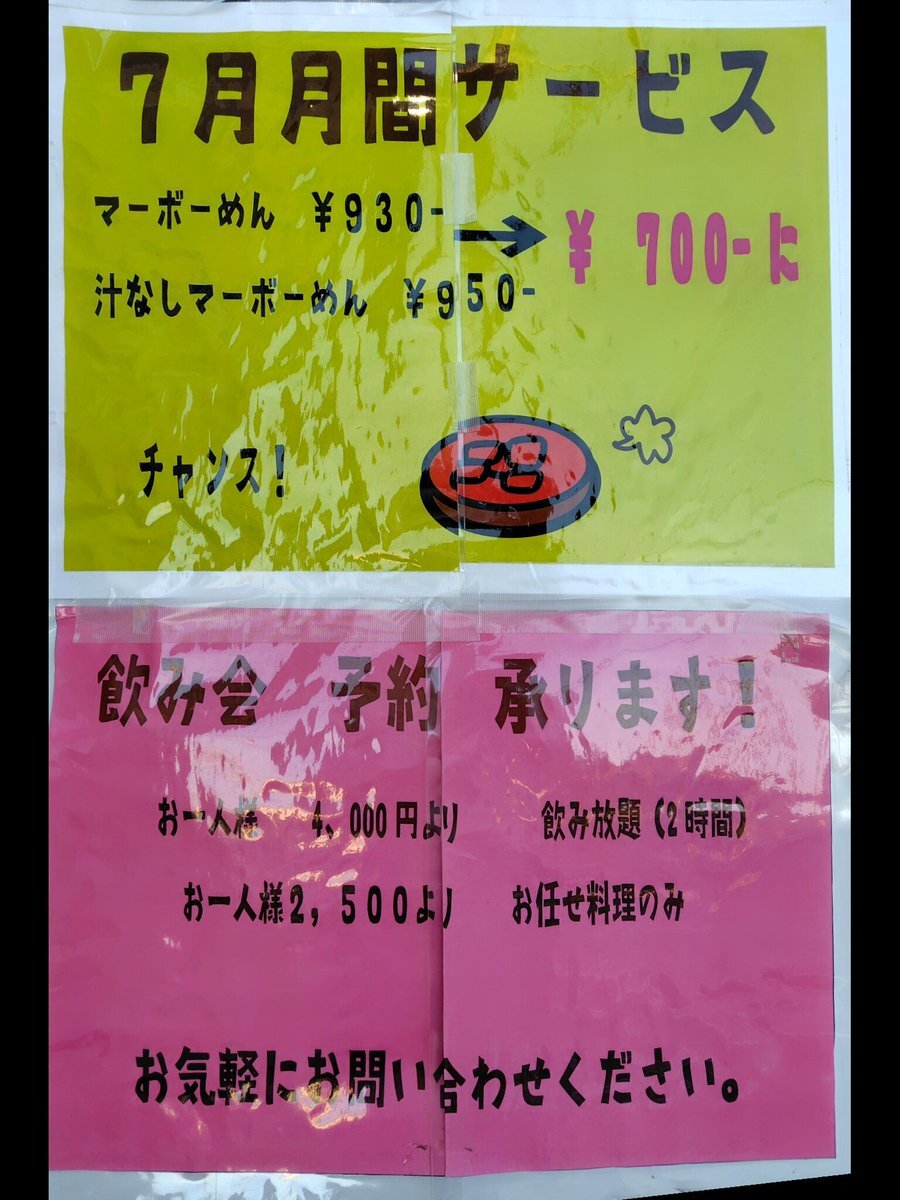 7月月間サービス
マーボーめん ¥930-
→ ¥ 700-に
汁なしマーボーめん ¥950-
チャンス!
飲み会 予約 承ります!
お一人様 4、000円より 飲み放題(2時間)
お一人様2,500より お任せ料理のみ
お気軽にお問い合わせください。